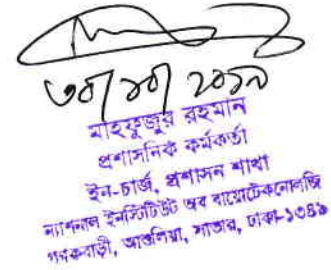 মাহফুজুর রহমান
প্রশাসনিক কর্মকর্তা
ইন-চার্জ, প্রশাসন শাখা
ন্যাশনাল ইনস্টিটিউট অব বায়োটেকনোলজি
গণকবাড়ী, আশুলিয়া, সাভার, ঢাকা-১৩৪৯